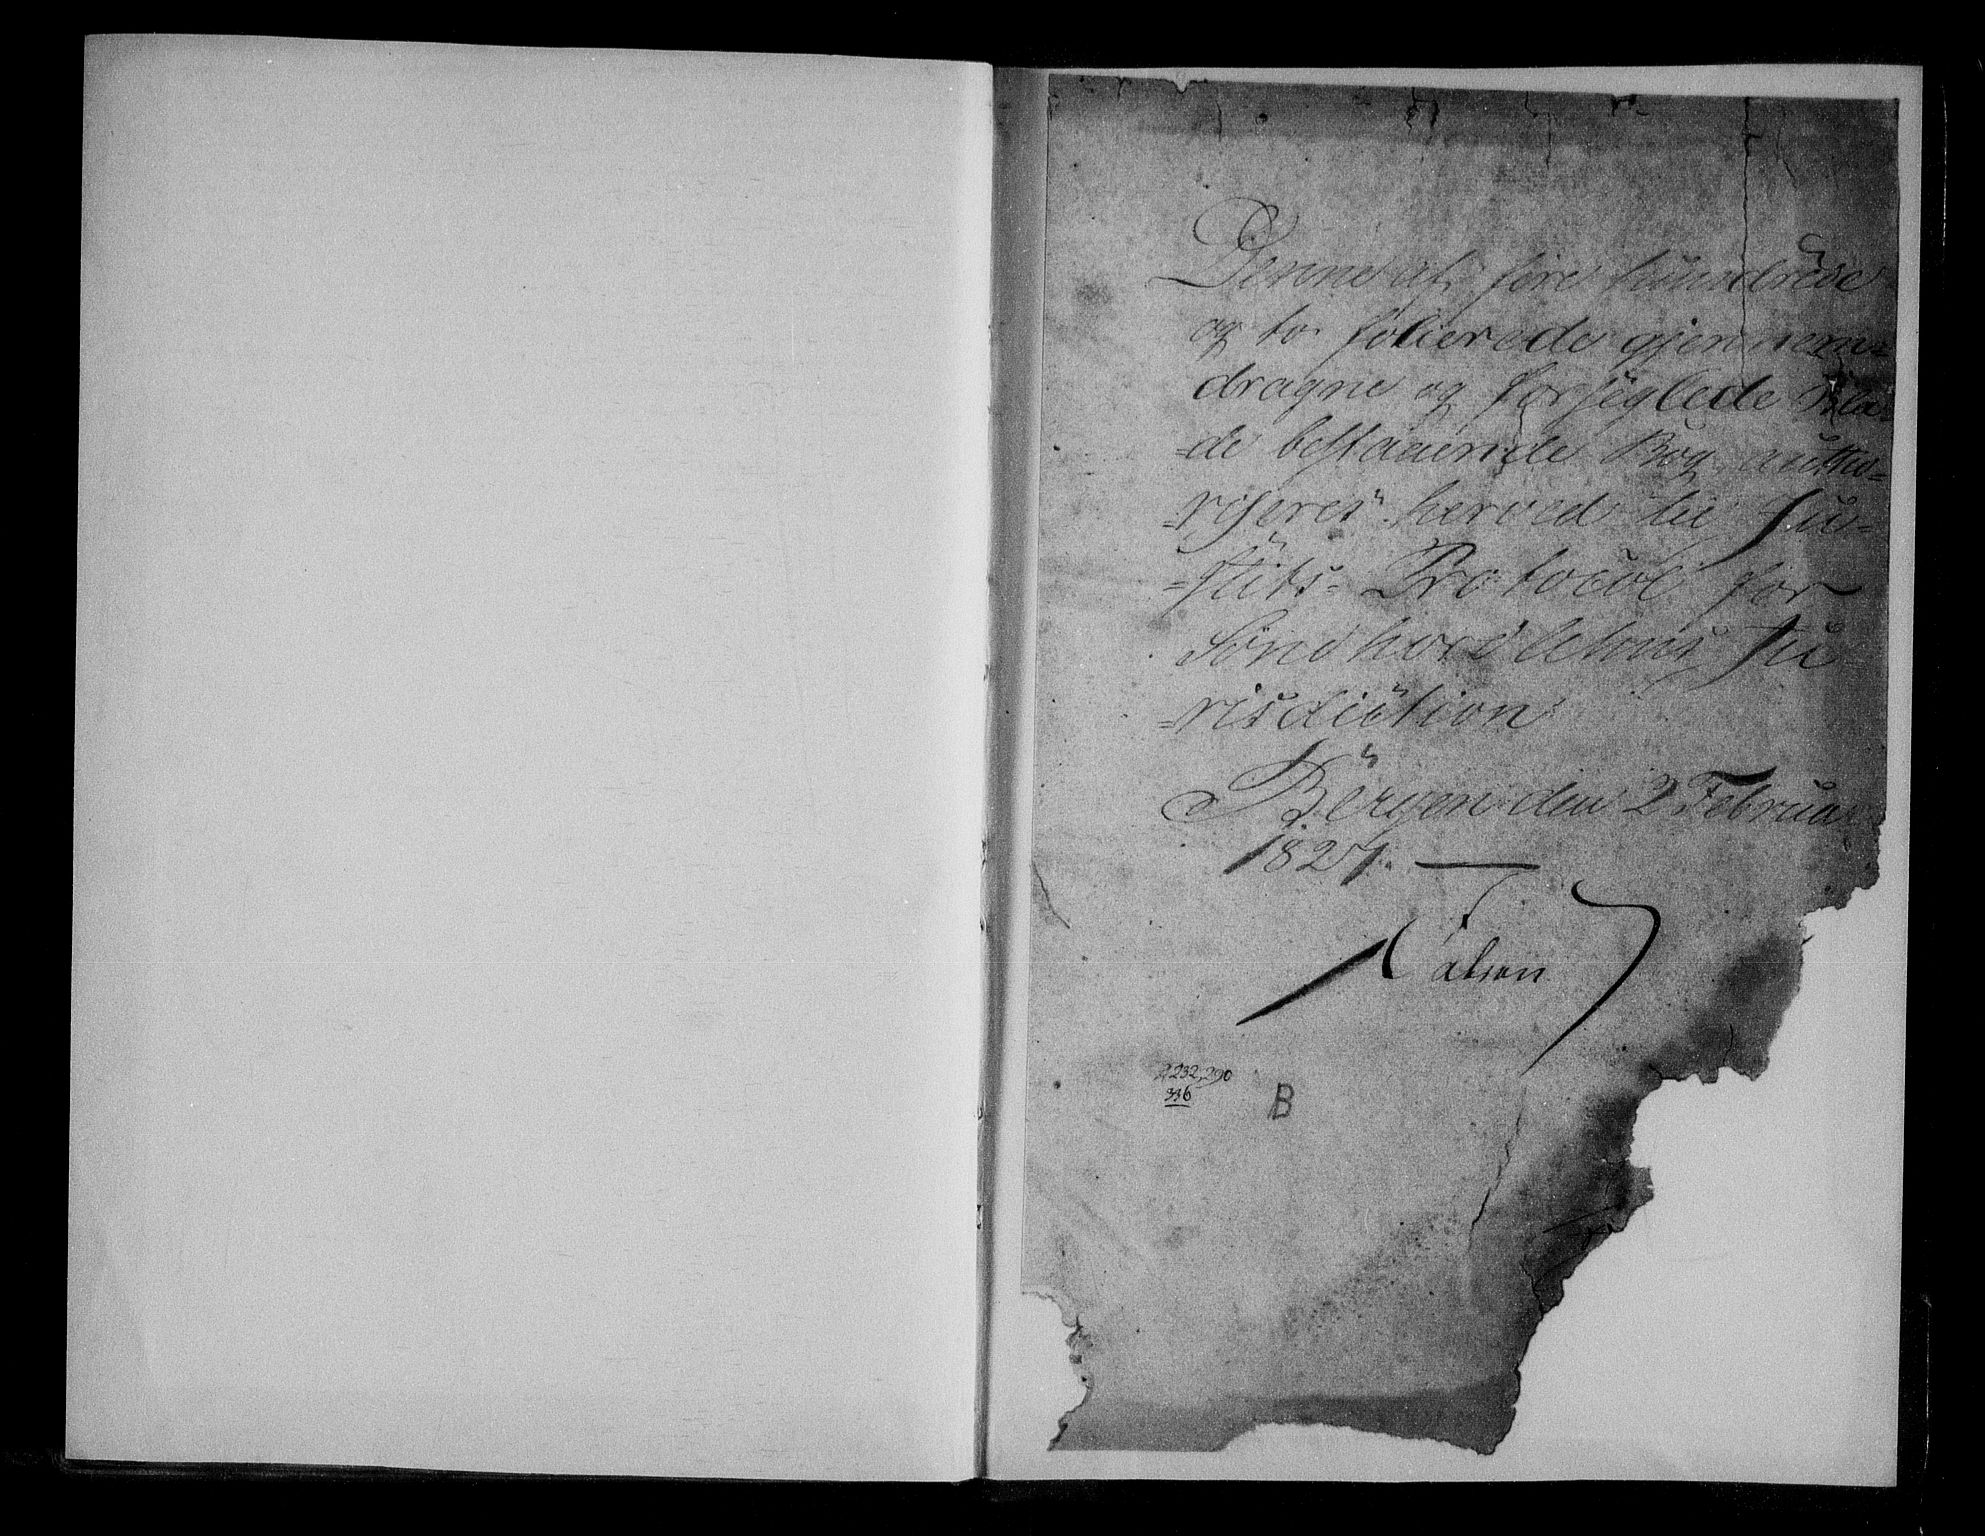 Denne af fire hundrede
og to folierede gjennem=
dragne og forseglede Bla=
=de bestaaende Bog autho=
=riseres herved til Ju=
=stits= Protocol for
Søndhordlehns Ju
=risdiction
Bergen den 2 Februar
1827.
Falsen
2,232,290
336
B